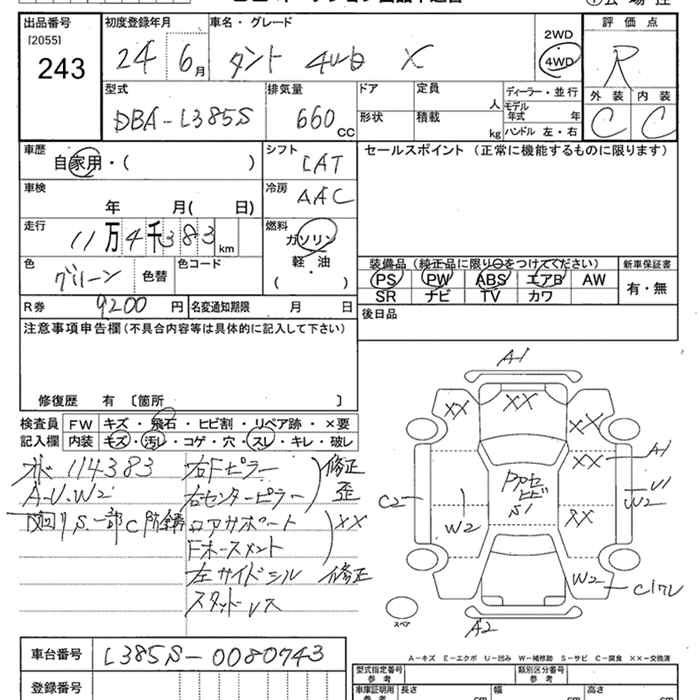 出品番号
[2055]
243
初度登録年月
24 6月
車名・グレード
タント 4WD X
2WD
4WD
評価点
R
外装 内装
C C
型式
DBA-L385S
排気量
660 CC
ドア
形状
定員 人
積載 kg
ディーラー・並行
モデル年式 年
ハンドル 左・右
車歴
自家用・( )
シフト
CAT
セールスポイント (正常に機能するものに限ります)
車検
年 月( 日)
冷房
AAC
走行
11万4千383km
燃料
ガソリン
軽・油
( ・ )
色
グリーン
色替
色コード
装備品 (純正品に限り○をつけてください)
PS PW ABS エアB AW
SR ナビ TV カワ
新車保証書
有・無
R券 9200円
名変通知期限 月 日
後日品
注意事項申告欄(不具合内容等は具体的に記入して下さい)
修復歴 有 [箇所 ]
検査員
記入欄
FW キズ・飛石・ヒビ割・リペア跡・×要
内装 キズ・汚レ・コゲ・穴・スレ・キレ・破レ
114383
A-U.W2
右Fピラー
右センターピラー
修正
歪
ロアサポート
Fホースメント
XX
左サイドシル 修正
スタッドレス
A1
XX
XX
XX
XX
A1
U1
W2
C2
W2
ヒビ
S1
XX
W2
A2
スペア
車台番号
L385S-0080743
登録番号
A-キズ E-エクボ U-凹み W-補修跡 S-サビ C-腐食 ××-交換済
型式指定番号
参考
類別区分番号
参考
車庫証明用
参考
長さ cm
幅 cm
高さ cm